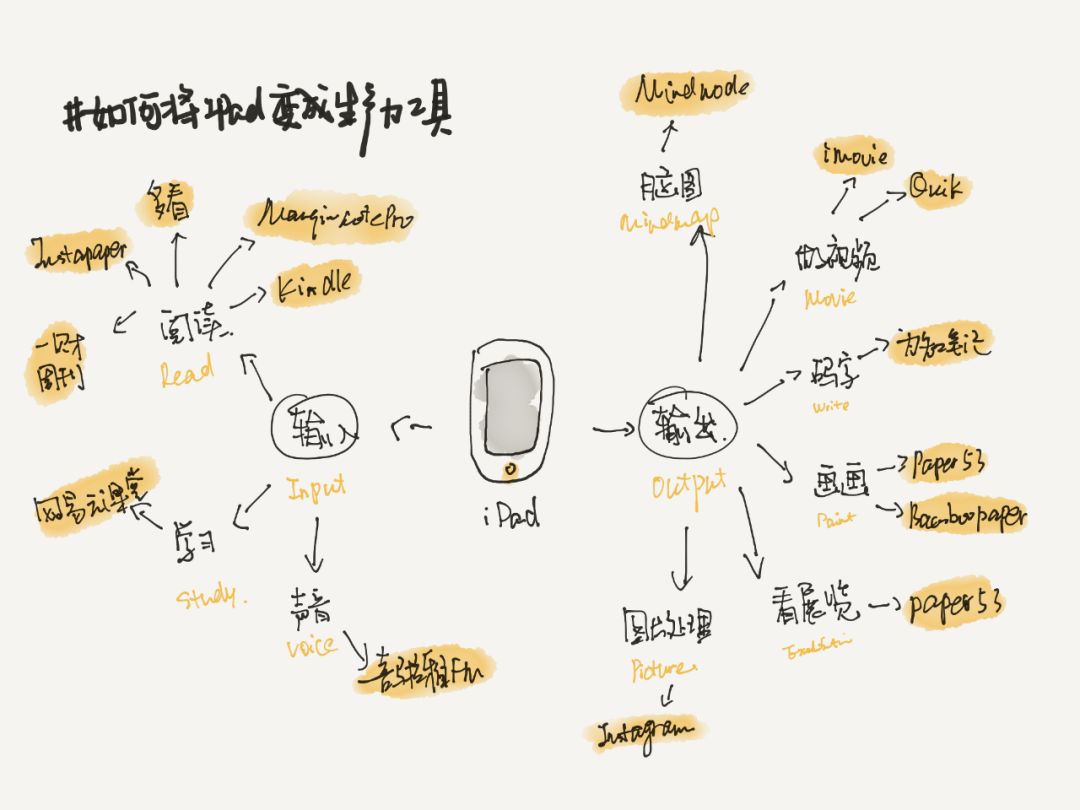 #如何将iPad变成生产力工具
多看
MarginnotePro
Instapaper
Kindle
阅读
Read
周刊
输入
Input
网易云课堂
学习
Study.
声音
Voice
喜马拉雅Fm
iPad
输出
Output
Mindnode
脑图
Mindmap
imovie
Quik
做视频
Movie
为知笔记
码字
Write
画画
Paint
Paper53
Bamboopaper
看展览
paper53
图片处理
Picture
Instagram